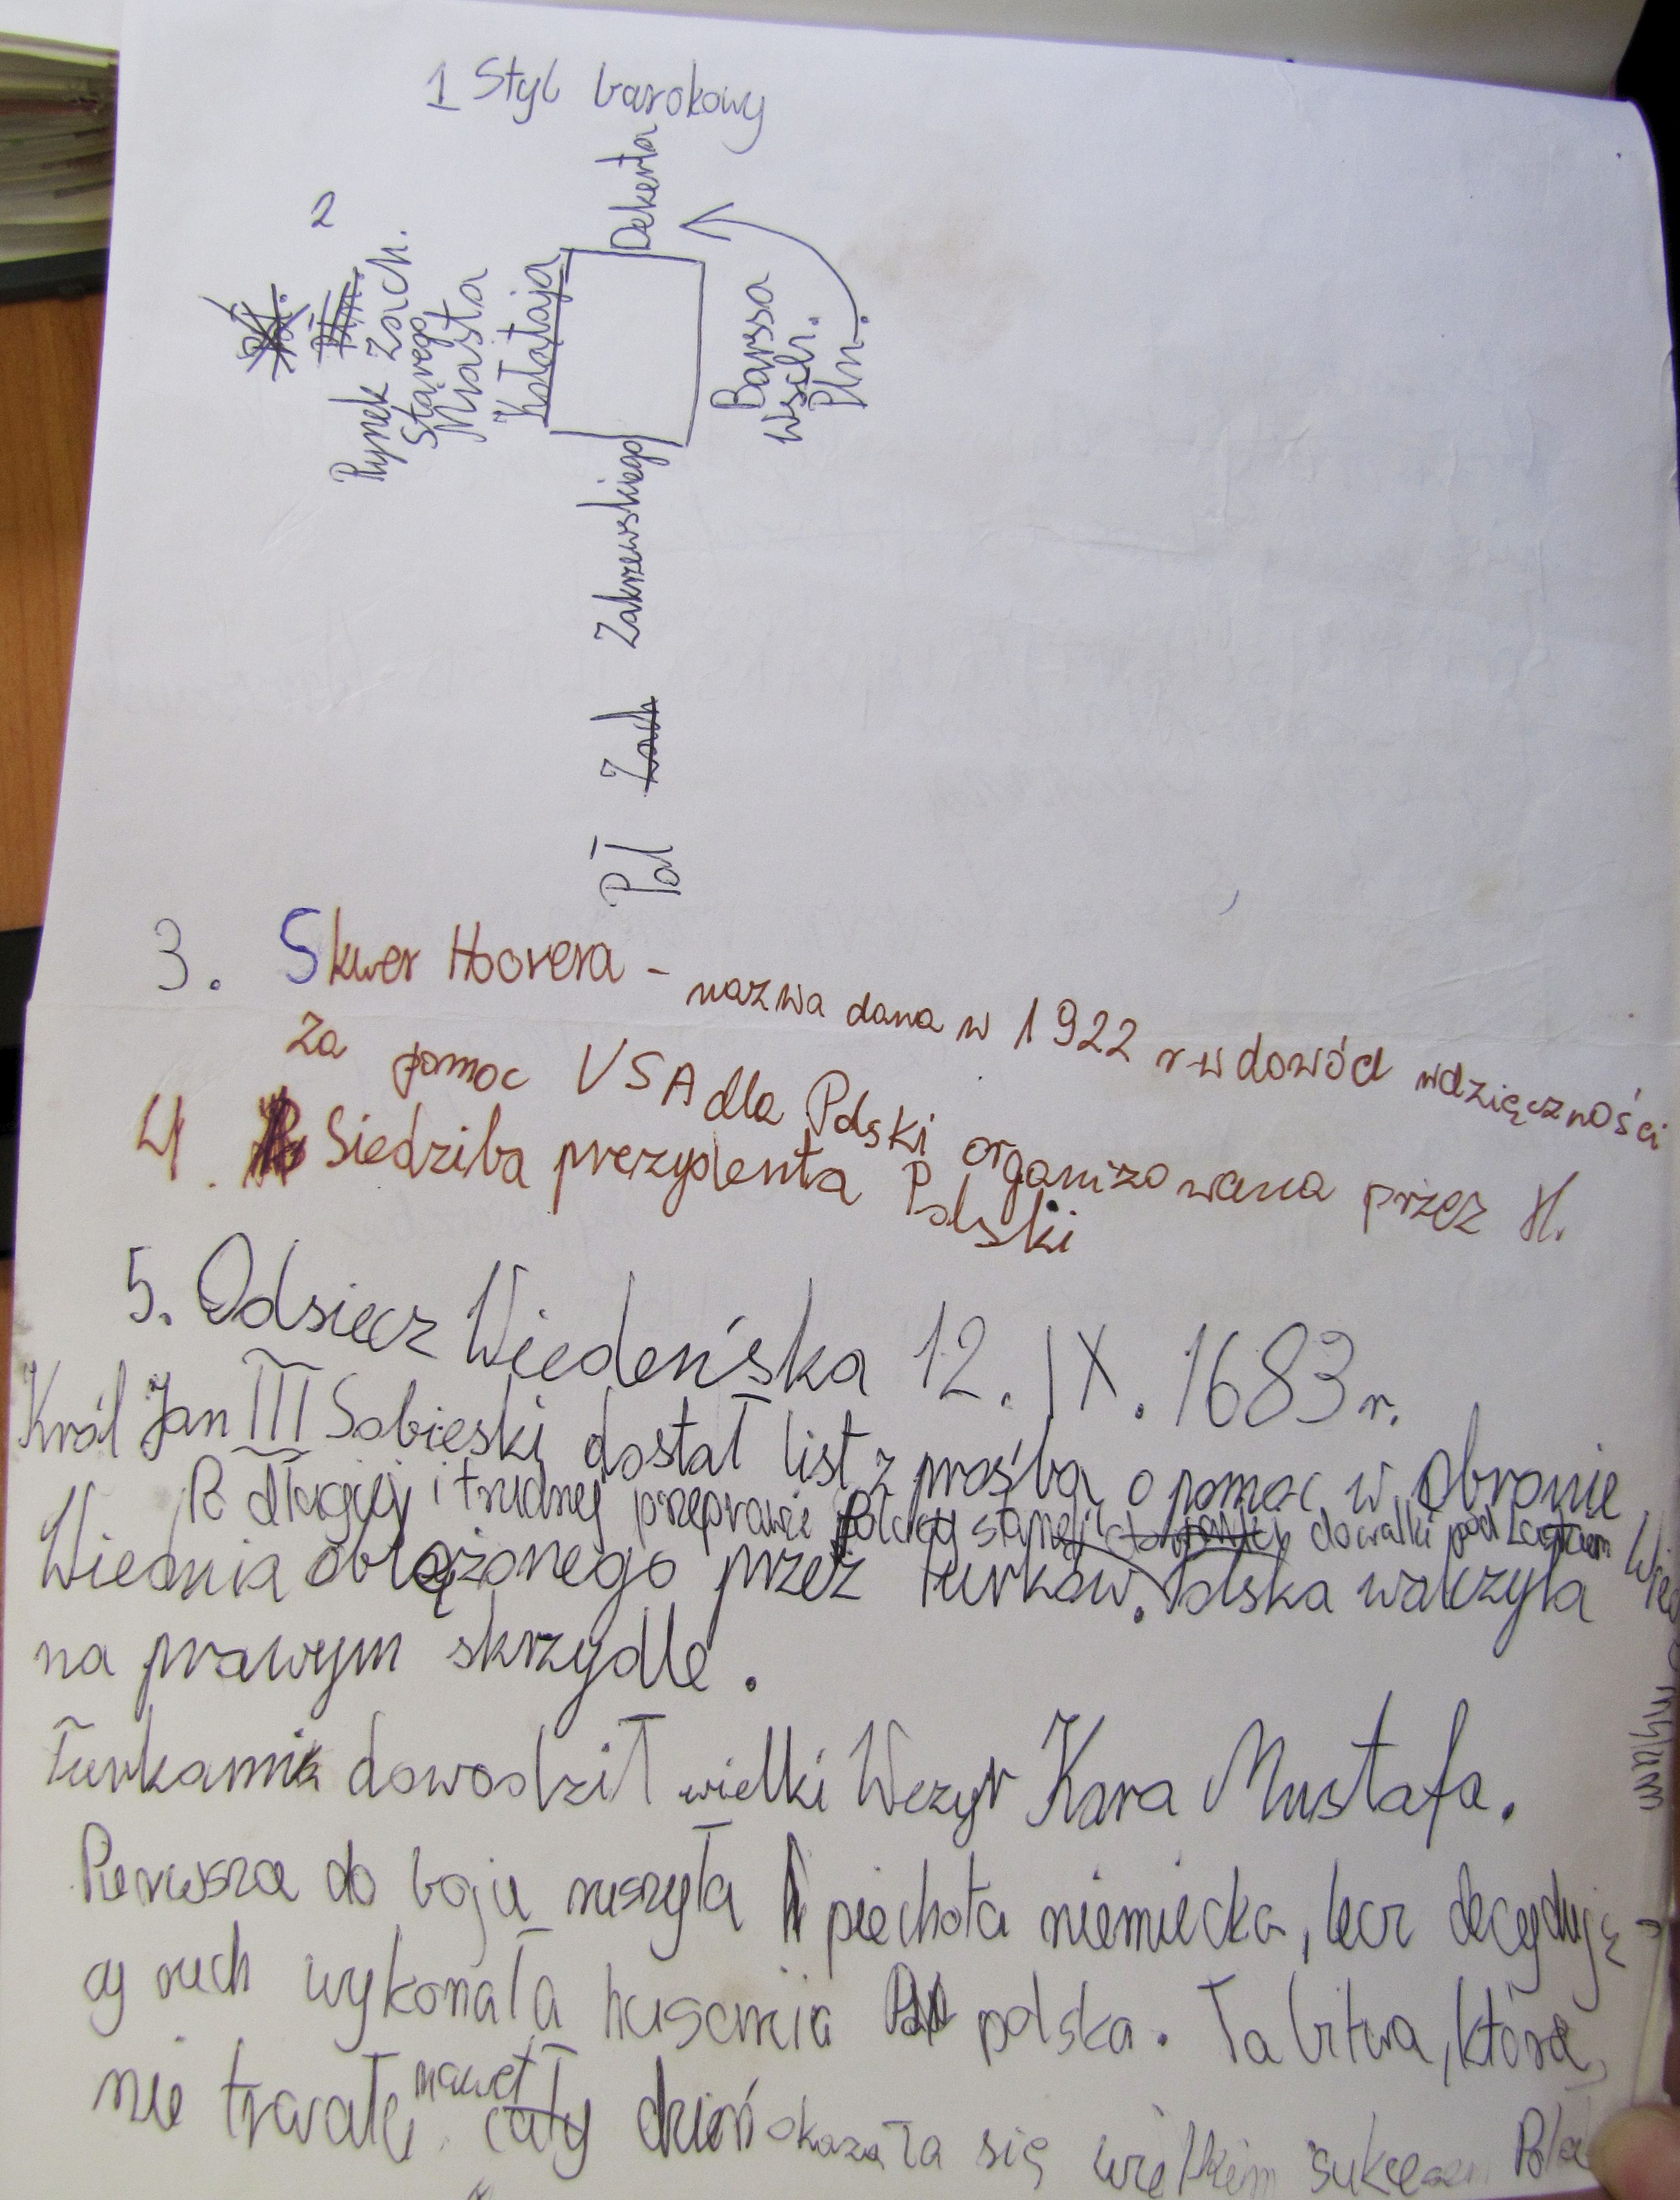 1 Styl barokowy
2
Rynek Zach.
Starego
Miasta
Kołątaja
Dekerta
Barssa
Wsch.
Płn.
Zakrzewskiego
Poł Zach
3. Skwer Hoovera - nazwa dana w 1922 r w dowód wdzięczności
za pomoc USA dla Polski organizowana przez H.
4. Siedziba prezydenta Polski
5. Odsiecz Wiedeńska 12. IX. 1683 r.
Król Jan III Sobieski dostał list z prośbą o pomoc w obronie
Wiednia oblążonego przez turków. Polska walczyła
Po długiej i trudnej przeprawie polacy stanęli do walki pod
na prawym skrzydle.
Turkami dowodził wielki Wezyr Kara Mustafa.
Pierwsza do boju ruszyła piechota niemiecka, lecz decydują
cy ruch wykonała husaria polska. Ta bitwa, która
nie trwała nawet cały dzień okazała się wielkim